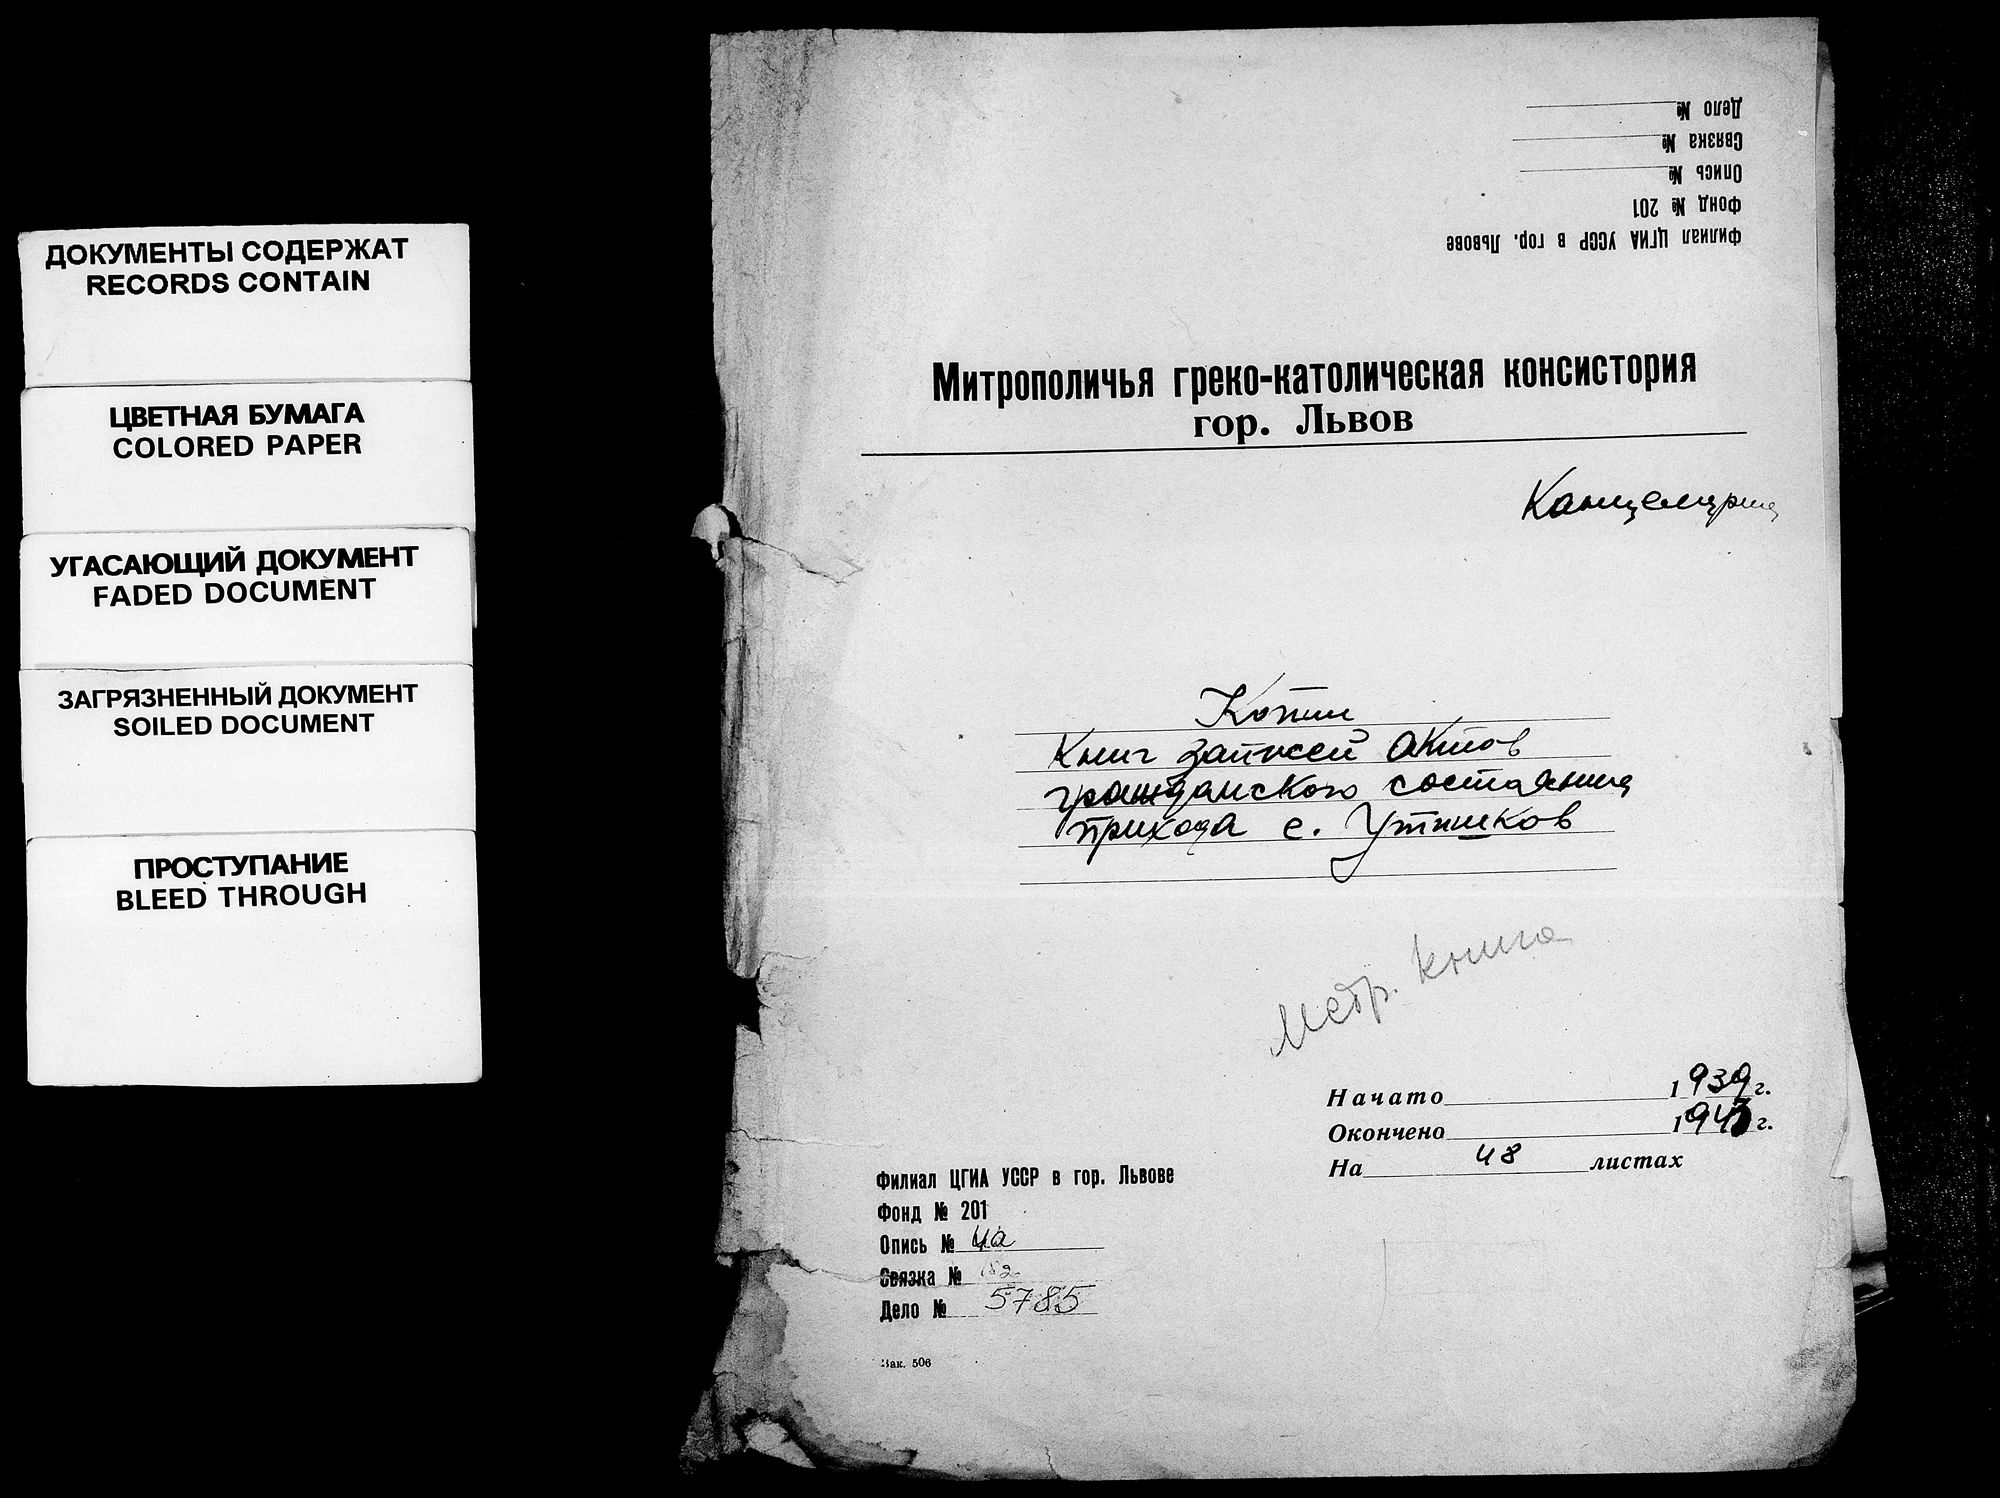 ДОКУМЕНТЫ СОДЕРЖАТ
RECORDS CONTAIN
ЦВЕТНАЯ БУМАГА
COLORED PAPER
УГАСАЮЩИЙ ДОКУМЕНТ
FADED DOCUMENT
ЗАГРЯЗНЕННЫЙ ДОКУМЕНТ
SOILED DOCUMENT
ПРОСТУПАНИЕ
BLEED THROUGH
Филиал ЦГИА УССР в гор. Львове
Фонд № 201
Опись №
Связка №
Дело №
Митрополичья греко-католическая консистория
гор. Львов
Канцелярия
Копии
Книг записей актов
гражданского состояния
прихода с. Утишков
Метр. книга
Начато 1939 г.
Окончено 1943 г.
На 48 листах
Филиал ЦГИА УССР в гор. Львове
Фонд № 201
Опись № 4а
Связка №
Дело № 5785
Зак. 506